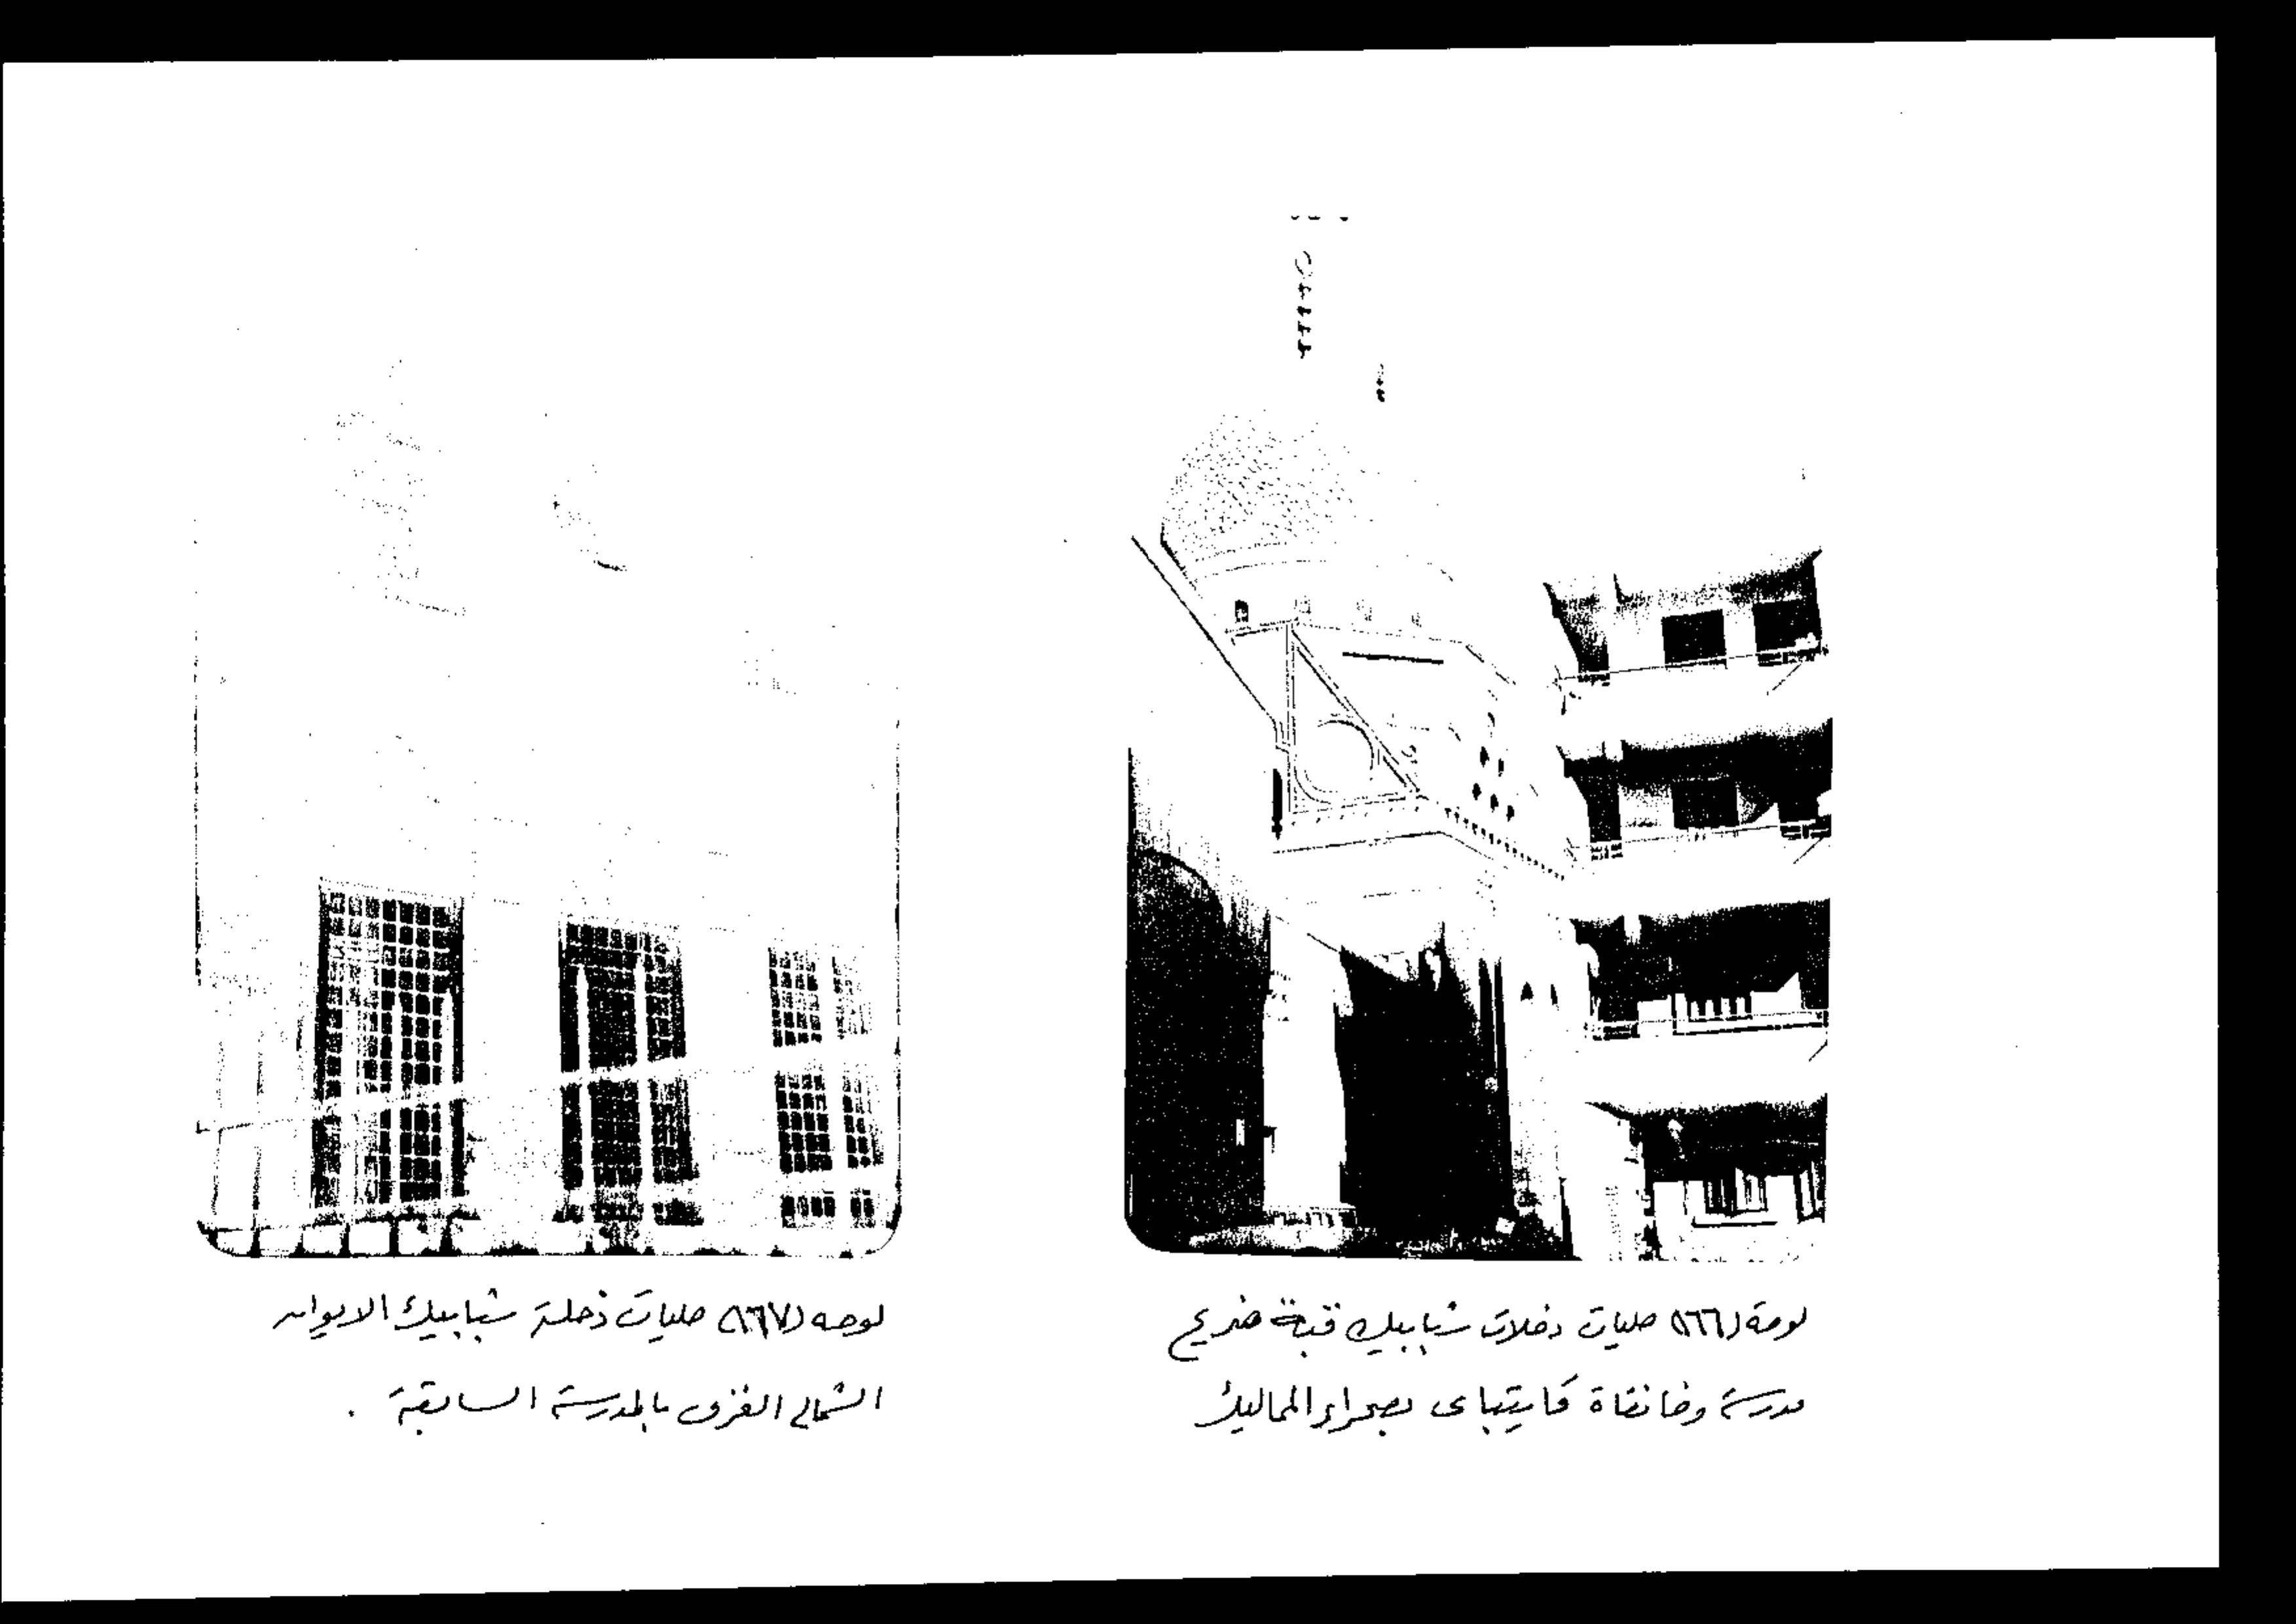 لوحة (١٦٦) حليات دخلات شبابيك قبة ضريح
مدرسة وخانقاة قايتباى بصحراء المماليك
لوحه (١٦٧) حليات دخلة شبابيك الايوان
الشمالى الغربى بالمدرسة السابقة .